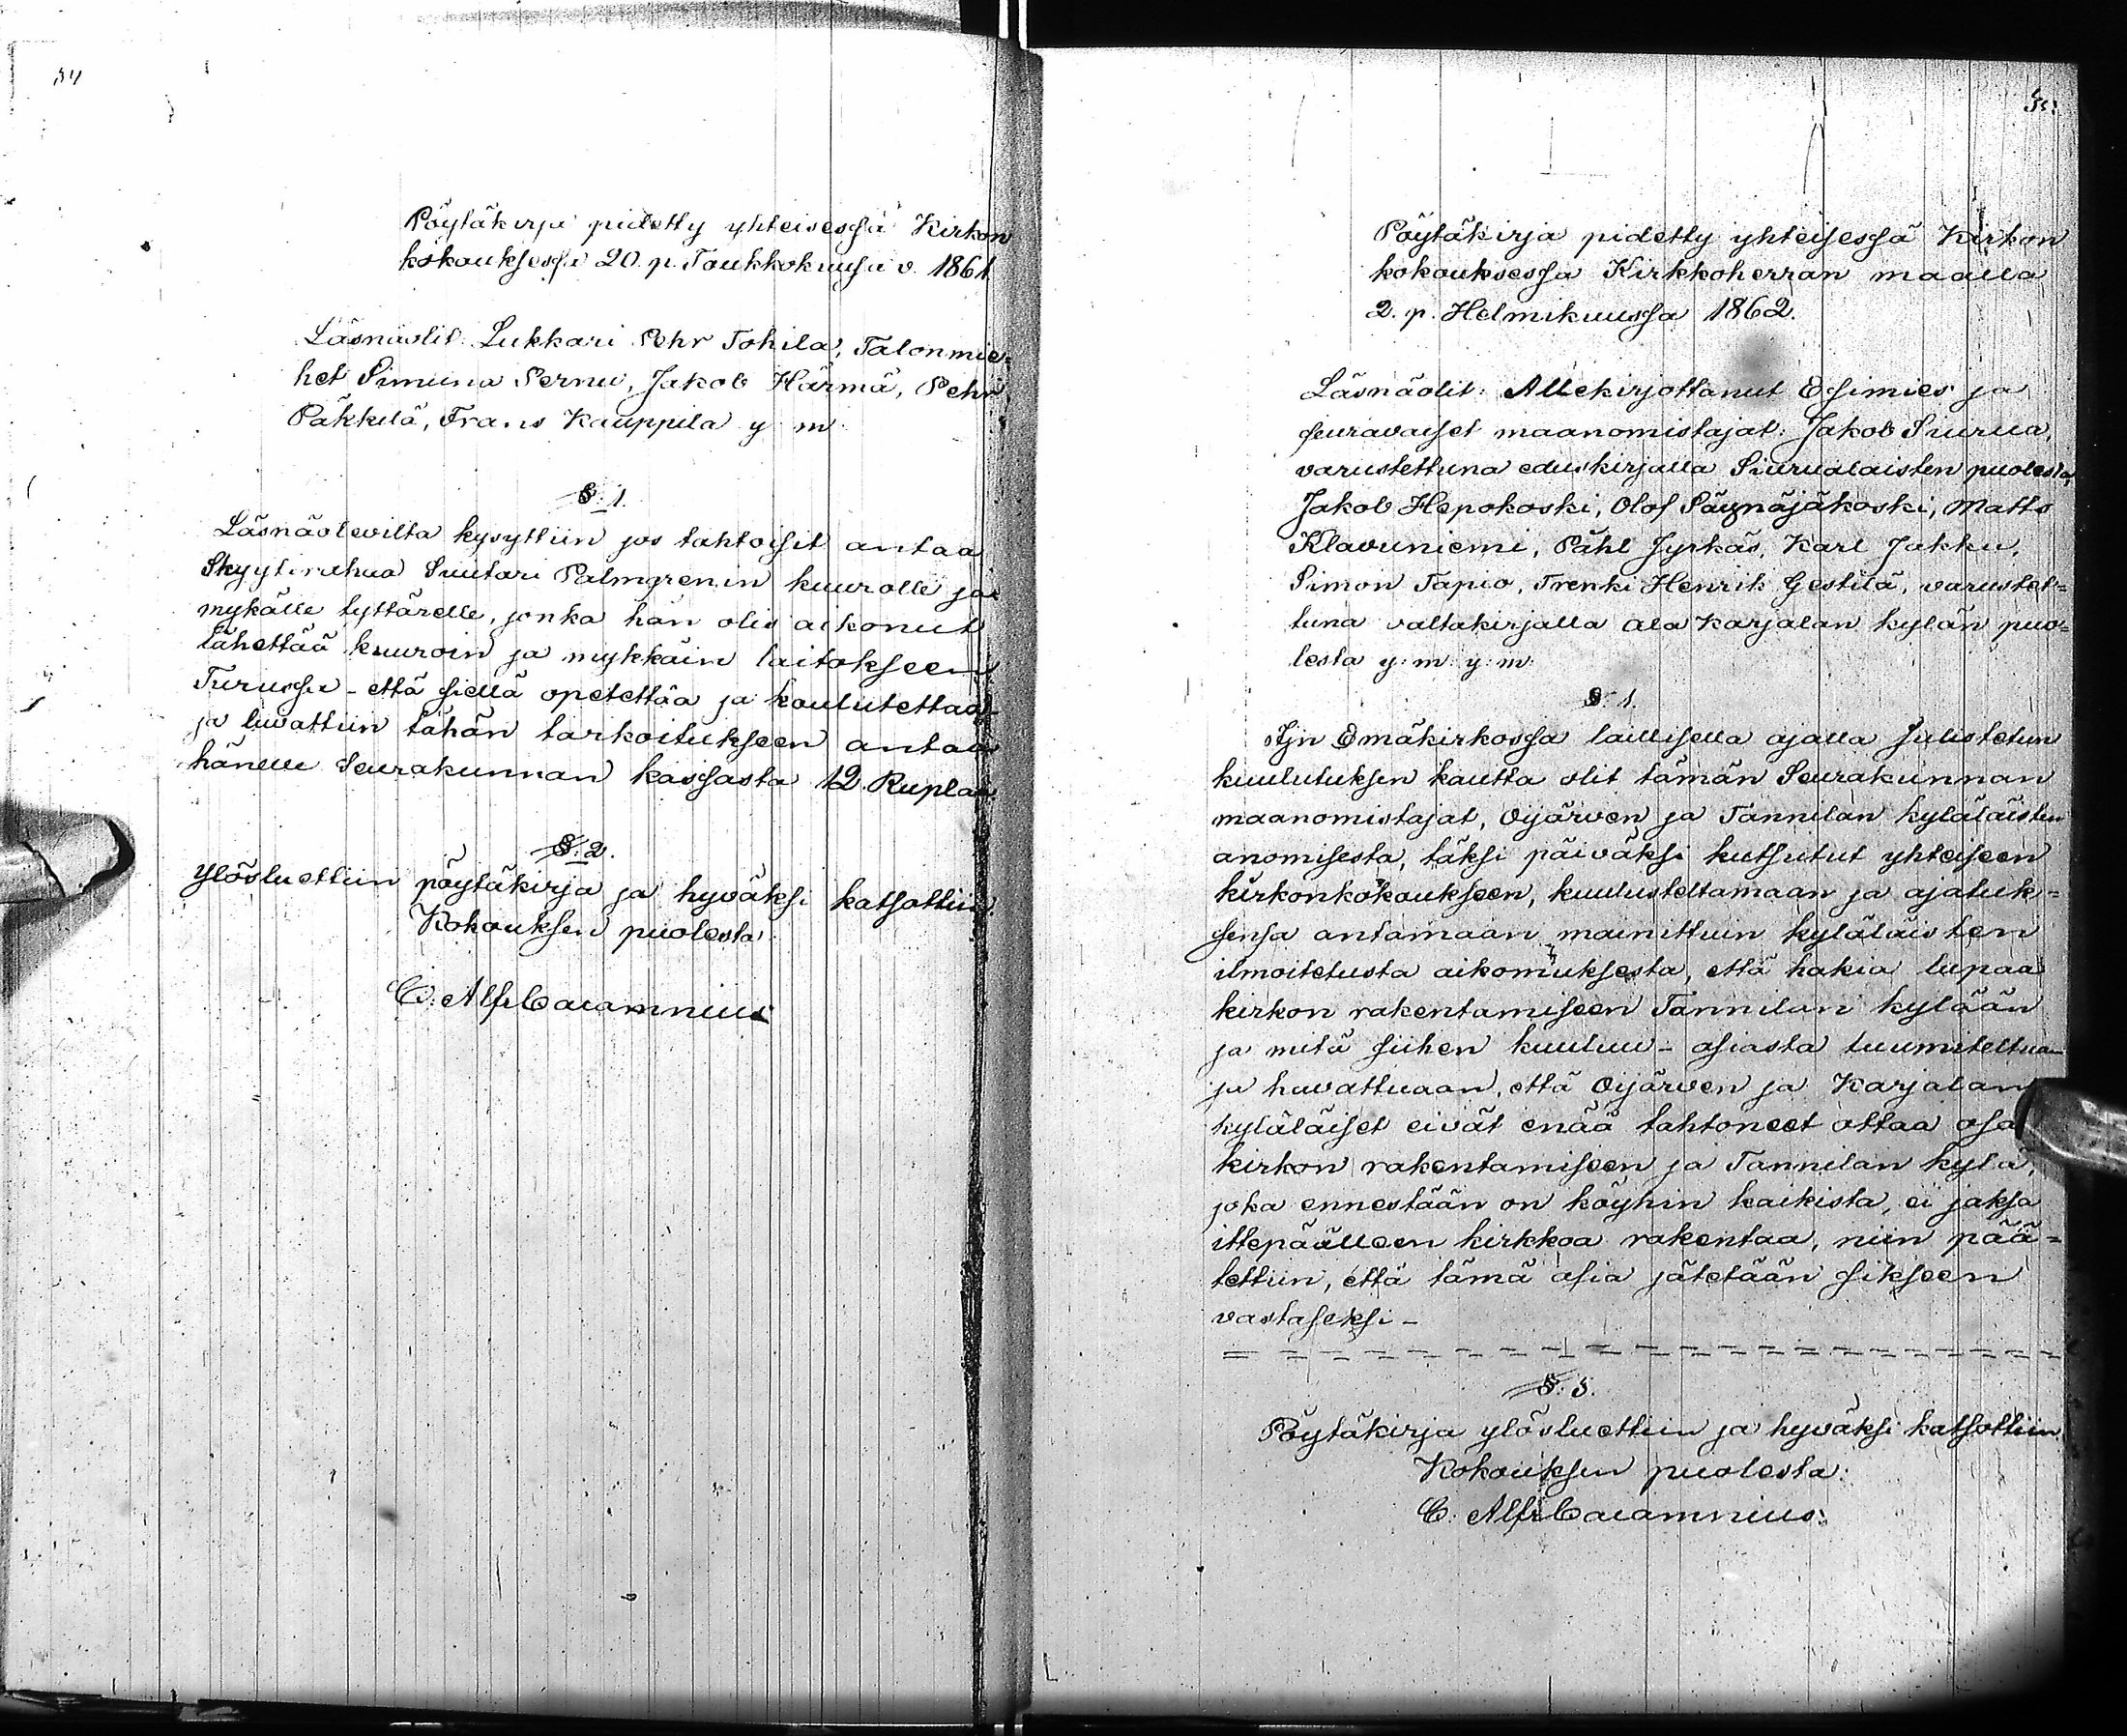 34
Pöytäkirja pidetty yhteisessä Kirkon
kokouksessa 20. p. Toukkokuusa v. 1861
Läsnäolit: Lukkari Pehr Tohila, Talonmie=
het Simuna Pernu, Jakob Härmä, Pehr
Päkkilä, Frans Kauppila y. m.
§. 1.
Läsnäolevilta kysyttiin jos tahtoisit antaa
Skyytirahaa Suutari Palmgrenin kuurolle ja
mykälle tyttärelle, jonka hän olis aikonut
lähettää kuuroin ja mykkäin laitokseen
Turussa - että siellä opetettaa ja koulutettaa -
ja luvattiin tähän tarkoitukseen antaa
hänelle Seurakunnan kassasta 12 Ruplaa.
§. 2.
Ylösluettiin pöytäkirja ja hyväksi katsottiin.
Kokouksen puolesta
C. Alfr Calamnius
35.
Pöytäkirja pidetty yhteisessä Kirkon
kokouksessa Kirkkoherran maalla
2. p. Helmikuussa 1862.
Läsnäolit: Allekirjottanut Esimies ja
seuravaiset maanomistajat: Jakob Siurua,
varustettuna eduskirjalla Siurualaisten puolesta,
Jakob Hepokoski, Olof Päynäjäkoski, Matts
Klavuniemi, Påhl Jyrkäs, Karl Jakku,
Simon Tapio, Trenki Henrik Gestilä, varustet=
tuna valtakirjalla ala Karjalan kylän puo=
lesta y. m. y. m.
§. 1.
Ijn Emäkirkossa laillisella ajalla Julistetun
kuulutuksen kautta olit tämän Seurakunnan
maanomistajat, Oijärven ja Tannilan kyläläisten
anomisesta, täksi päiväksi kutsutut yhteiseen
kirkonkokoukseen, kuulusteltamaan ja ajatuk=
sensa antamaan mainittuin kyläläisten
ilmoitetusta aikomuksesta, että hakia lupaa
kirkon rakentamiseen Tannilan kylään
ja mitä siihen kuuluu - asiasta tuumiteltua
ja havattuaan, että Oijärven ja Karjalan
kyläläiset eivät enää tahtoneet ottaa osa
kirkon rakentamiseen ja Tannilan kylä,
joka ennestään on köyhin kaikista, ei jaksa
ittepäälleen kirkkoa rakentaa, niin pää=
tettiin, että tämä asia jätetään sikseen
vastaseksi -
§. 5.
Pöytäkirja ylösluettiin ja hyväksi katsottiin
Kokouksen puolesta:
C. Alfr Calamnius.